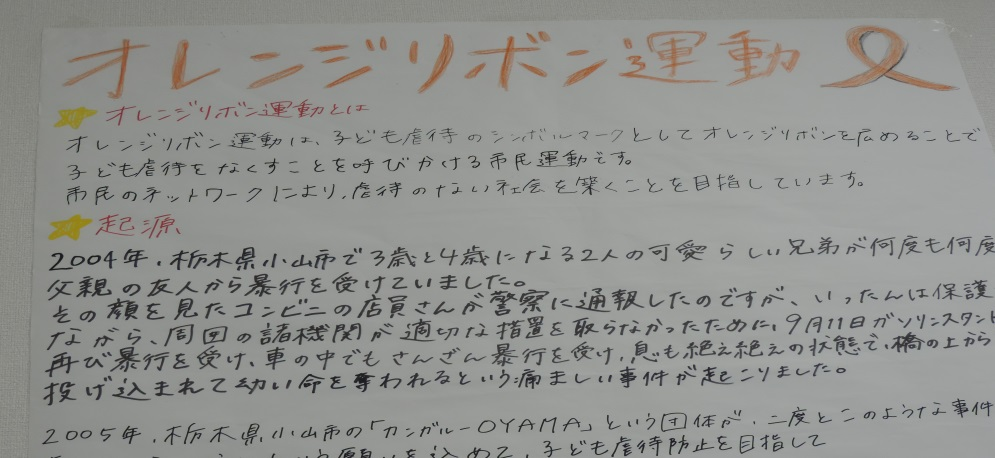 オレンジリボン運動
オレンジリボン運動とは
オレンジリボン運動は、子ども虐待のシンボルマークとしてオレンジリボンを広めることで
子ども虐待をなくすことを呼びかける市民運動です。
市民のネットワークにより、虐待のない社会を築くことを目指しています。
起源
2004年、栃木県小山市で3歳と4歳になる2人の可愛らしい兄弟が何度も何度
父親の友人から暴行を受けていました。
その顔を見たコンビニの店員さんが警察に通報したのですが、いったんは保護
ながら、周囲の諸機関が適切な措置を取らなかったために、9月11日ガソリンスタンド
再び暴行を受け、車の中でもさんざん暴行を受け、息も絶え絶えの状態で、橋の上から
投げ込まれて幼い命を奪われるという痛ましい事件が起こりました。
2005年、栃木県小山市の「カンガルーOYAMA」という団体が、二度とこのような事件
願いを込めて、子ども虐待防止を目指して